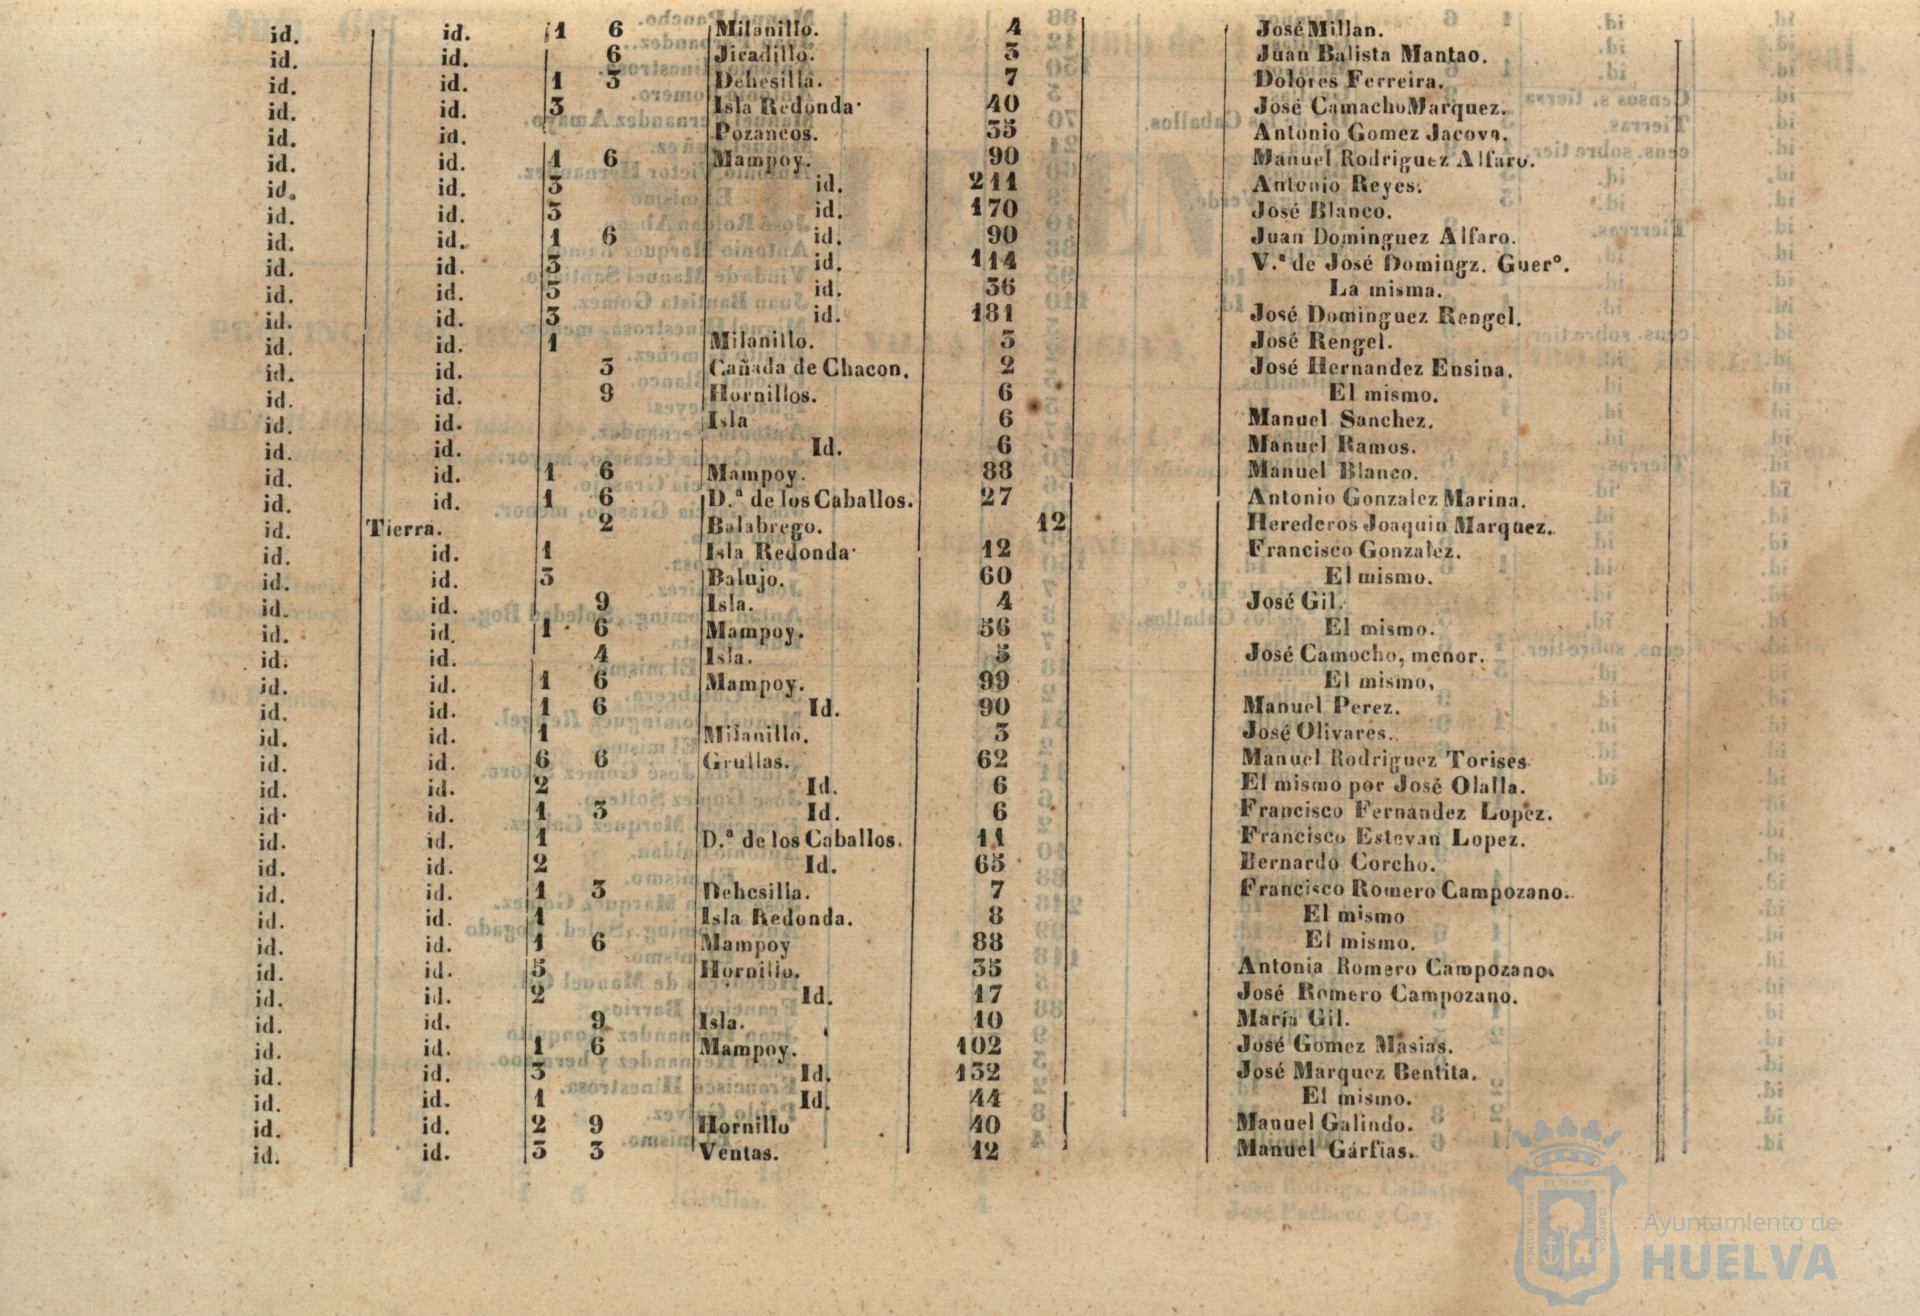 id. id. 1 6 Milanillo. 4 José Millan.
id. id. 6 Jicadillo. 3 Juan Balista Mantao.
id. id. 1 3 Dehesilla. 7 Dolores Ferreira.
id. id. 3 Isla Redonda 40 José Camacho Marquez.
id. id. Pozancos. 35 Antonio Gomez Jacova.
id. id. 1 6 Mampoy. 90 Manuel Rodriguez Alfaro.
id. id. 3 id. 211 Antonio Reyes.
id. id. 3 id. 170 José Blanco.
id. id. 1 6 id. 90 Juan Dominguez Alfaro.
id. id. 3 id. 114 V.ª de José Domingz. Guerº.
id. id. 3 id. 36 La misma.
id. id. 3 id. 181 José Dominguez Rengel.
id. id. 1 Milanillo. 3 José Rengel.
id. id. 3 Cañada de Chacon. 2 José Hernandez Ensina.
id. id. 9 Hornillos. 6 El mismo.
id. id. Isla 6 Manuel Sanchez.
id. id. Id. 6 Manuel Ramos.
id. id. 1 6 Mampoy. 88 Manuel Blanco.
id. id. 1 6 D.ª de los Caballos. 27 Antonio Gonzalez Marina.
id. Tierra. 2 Balabrego. 12 Herederos Joaquin Marquez.
id. id. 1 Isla Redonda 12 Francisco Gonzalez.
id. id. 3 Balujo. 60 El mismo.
id. id. 9 Isla. 4 José Gil.
id. id. 1 6 Mampoy. 56 El mismo.
id. id. 4 Isla. 5 José Camocho, menor.
id. id. 1 6 Mampoy. 99 El mismo,
id. id. 1 6 Id. 90 Manuel Perez.
id. id. 1 Milanillo. 3 José Olivares.
id. id. 6 6 Grullas. 62 Manuel Rodriguez Torises
id. id. 2 Id. 6 El mismo por José Olalla.
id. id. 1 3 Id. 6 Francisco Fernandez Lopez.
id. id. 1 D.ª de los Caballos. 11 Francisco Estevan Lopez.
id. id. 2 Id. 65 Bernardo Corcho.
id. id. 1 3 Dehesilla. 7 Francisco Romero Campozano.
id. id. 1 Isla Redonda. 8 El mismo
id. id. 1 6 Mampoy 88 El mismo.
id. id. 5 Hornillo. 35 Antonia Romero Campozano.
id. id. 2 Id. 17 José Romero Campozano.
id. id. 9 Isla. 10 María Gil.
id. id. 1 6 Mampoy. 102 José Gomez Masias.
id. id. 3 Id. 132 José Marquez Bentita.
id. id. 1 Id. 44 El mismo.
id. id. 2 9 Hornillo 40 Manuel Galindo.
id. id. 3 3 Ventas. 12 Manuel Gárfias.
Ayuntamiento de
HUELVA